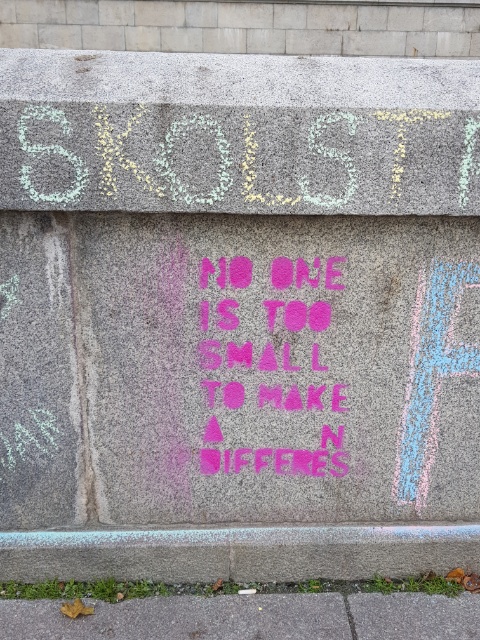 SKOLST
NO ONE
IS TOO
SMALL
TO MAKE
A N
DIFFERES